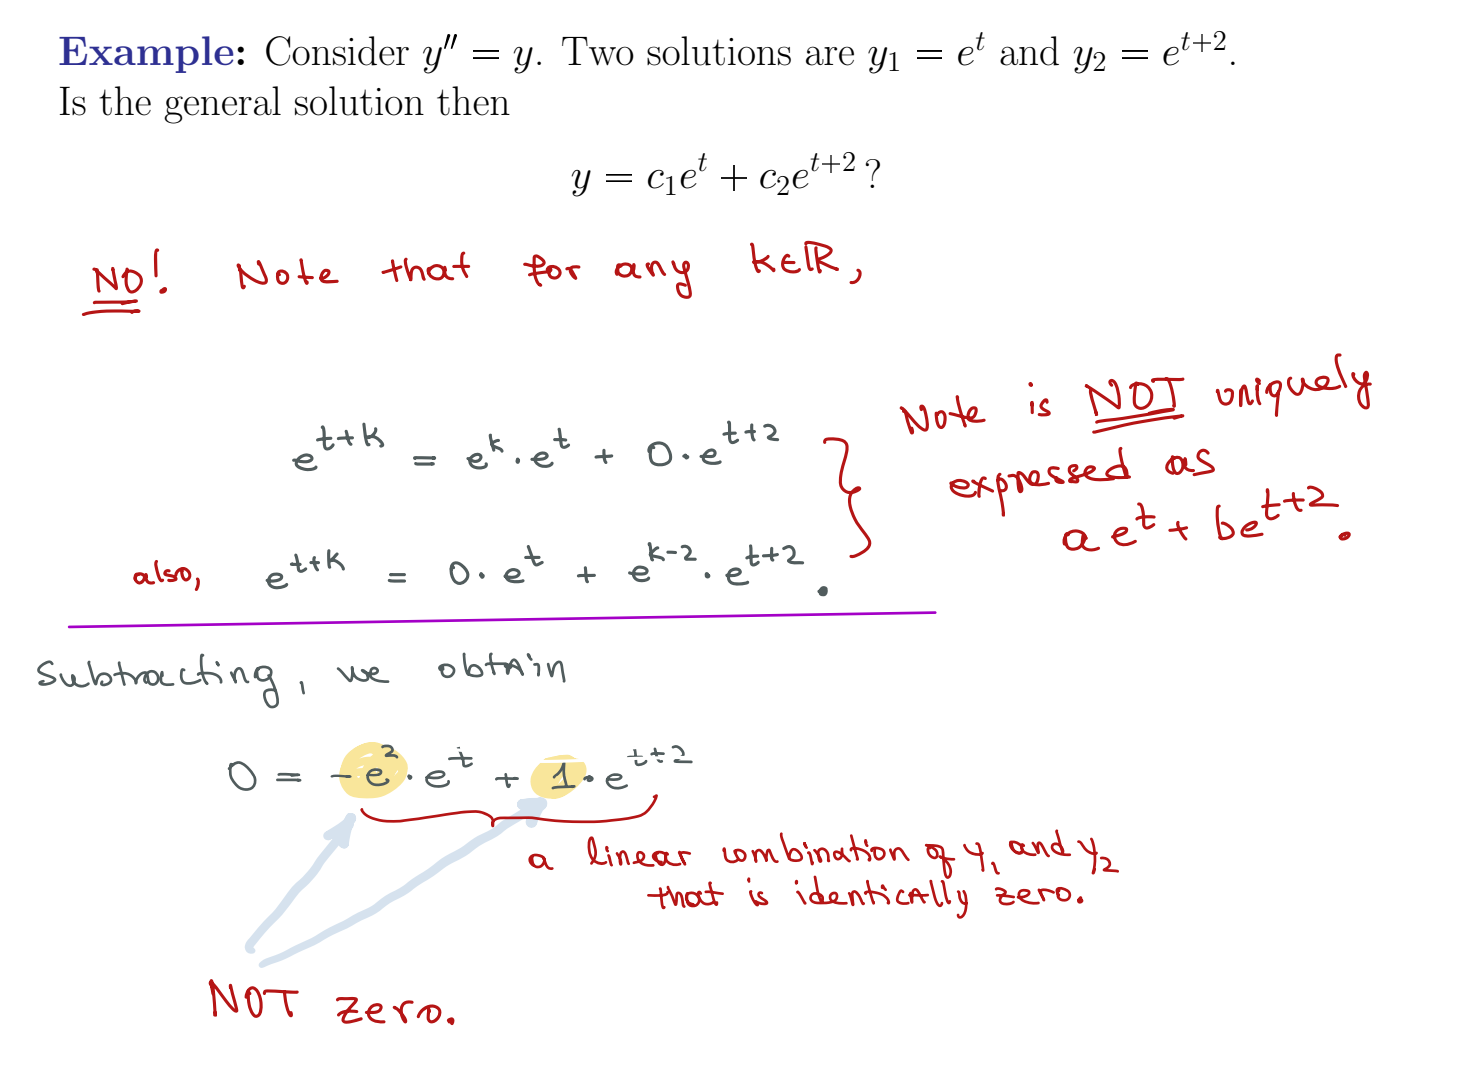 Example: Consider y″ = y. Two solutions are y₁ = eᵗ and y₂ = eᵗ⁺².
Is the general solution then
y = c₁eᵗ + c₂eᵗ⁺² ?
NO! Note that for any k∈ℝ,
e^{t+k} = e^k · e^t + 0 · e^{t+2}
Note is NOT uniquely
expressed as
a e^t + b e^{t+2}.
also, e^{t+k} = 0 · e^t + e^{k-2} · e^{t+2}.
Subtracting, we obtain
0 = -e² · e^t + 1 · e^{t+2}
a linear combination of y₁ and y₂
that is identically zero.
NOT zero.